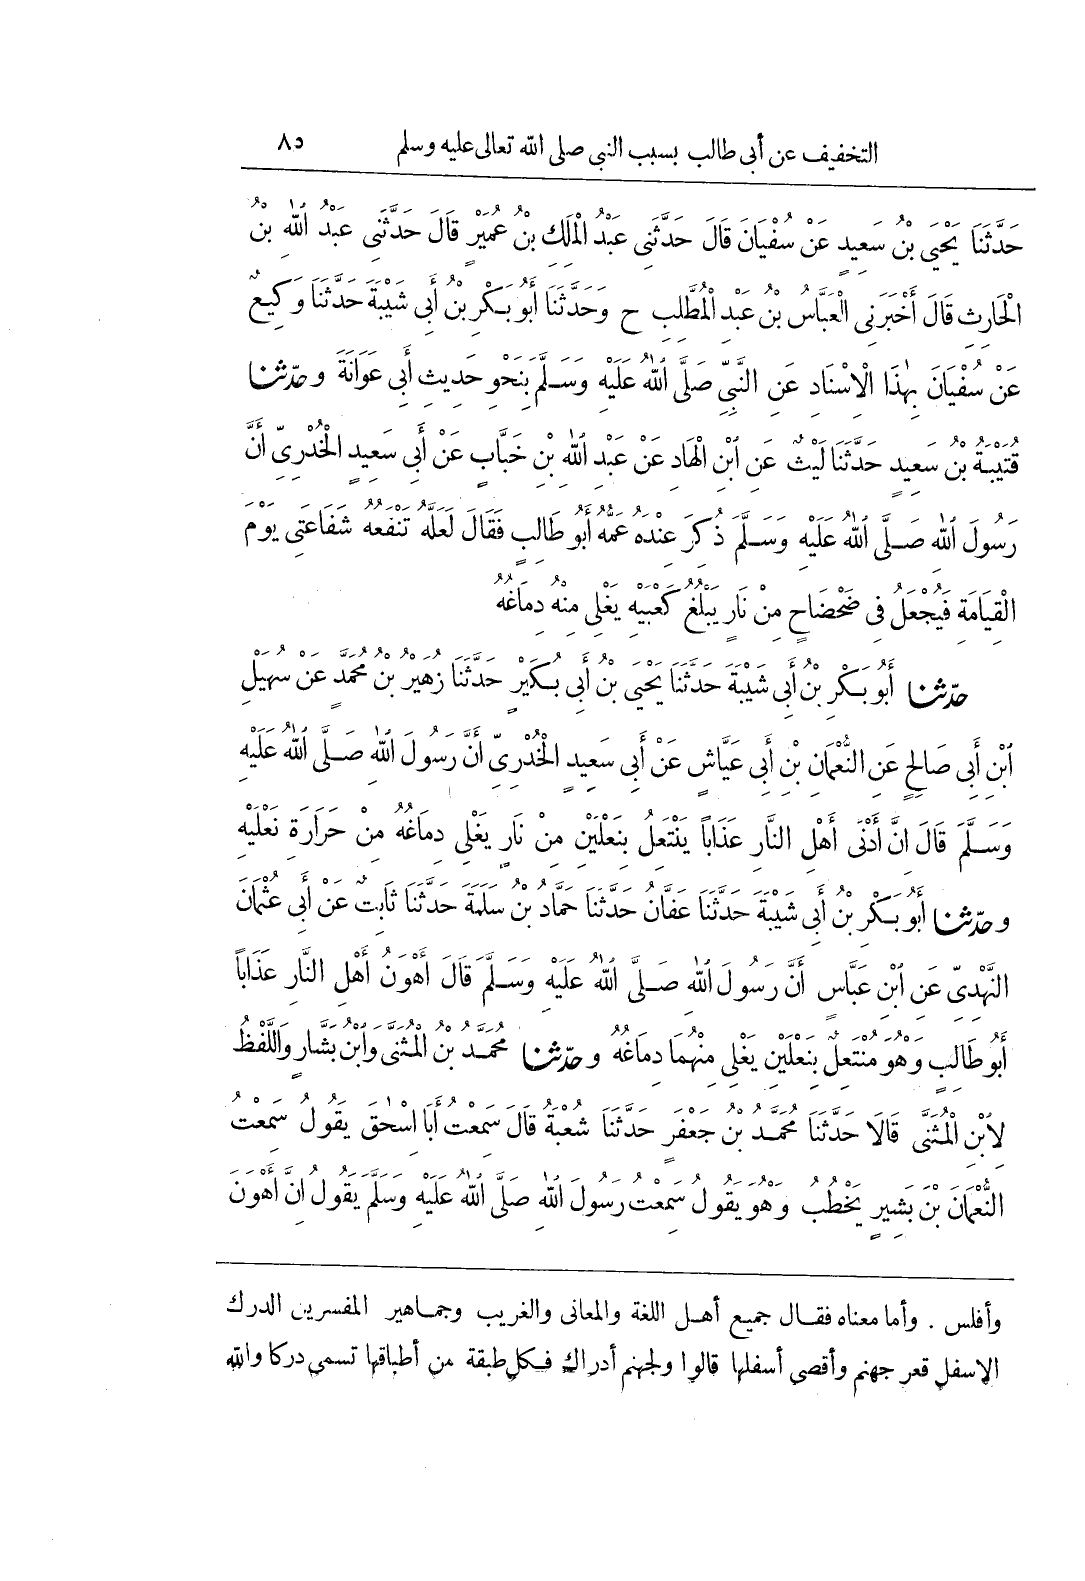 التخفيف عن أبى طالب بسبب النبى صلى الله تعالى عليه وسلم ٨٥
حَدَّثَنَا يَحْيَى بْنُ سَعِيدٍ عَنْ سُفْيَانَ قَالَ حَدَّثَنِى عَبْدُ الْمَلِكِ بْنُ عُمَيْرٍ قَالَ حَدَّثَنِى عَبْدُ اللّٰهِ بْنُ
الْحَارِثِ قَالَ أَخْبَرَنِى الْعَبَّاسُ بْنُ عَبْدِ الْمُطَّلِبِ ح وَحَدَّثَنَا أَبُو بَكْرِ بْنُ أَبِى شَيْبَةَ حَدَّثَنَا وَكِيعٌ
عَنْ سُفْيَانَ بِهٰذَا الْإِسْنَادِ عَنِ النَّبِىِّ صَلَّى اللّٰهُ عَلَيْهِ وَسَلَّمَ بِنَحْوِ حَدِيثِ أَبِى عَوَانَةَ وحَدّثنا
قُتَيْبَةُ بْنُ سَعِيدٍ حَدَّثَنَا لَيْثٌ عَنِ ابْنِ الْهَادِ عَنْ عَبْدِ اللّٰهِ بْنِ خَبَّابٍ عَنْ أَبِى سَعِيدٍ الْخُدْرِىِّ أَنَّ
رَسُولَ اللّٰهِ صَلَّى اللّٰهُ عَلَيْهِ وَسَلَّمَ ذُكِرَ عِنْدَهُ عَمُّهُ أَبُو طَالِبٍ فَقَالَ لَعَلَّهُ تَنْفَعُهُ شَفَاعَتِى يَوْمَ
الْقِيَامَةِ فَيُجْعَلُ فِى ضَحْضَاحٍ مِنْ نَارٍ يَبْلُغُ كَعْبَيْهِ يَغْلِى مِنْهُ دِمَاغُهُ
حدّثنا أَبُو بَكْرِ بْنُ أَبِى شَيْبَةَ حَدَّثَنَا يَحْيَى بْنُ أَبِى بُكَيْرٍ حَدَّثَنَا زُهَيْرُ بْنُ مُحَمَّدٍ عَنْ سُهَيْلِ
ابْنِ أَبِى صَالِحٍ عَنِ النُّعْمَانِ بْنِ أَبِى عَيَّاشٍ عَنْ أَبِى سَعِيدٍ الْخُدْرِىِّ أَنَّ رَسُولَ اللّٰهِ صَلَّى اللّٰهُ عَلَيْهِ
وَسَلَّمَ قَالَ إِنَّ أَدْنَى أَهْلِ النَّارِ عَذَابًا يَنْتَعِلُ بِنَعْلَيْنِ مِنْ نَارٍ يَغْلِى دِمَاغُهُ مِنْ حَرَارَةِ نَعْلَيْهِ
وحدّثنا أَبُو بَكْرِ بْنُ أَبِى شَيْبَةَ حَدَّثَنَا عَفَّانُ حَدَّثَنَا حَمَّادُ بْنُ سَلَمَةَ حَدَّثَنَا ثَابِتٌ عَنْ أَبِى عُثْمَانَ
النَّهْدِىِّ عَنِ ابْنِ عَبَّاسٍ أَنَّ رَسُولَ اللّٰهِ صَلَّى اللّٰهُ عَلَيْهِ وَسَلَّمَ قَالَ أَهْوَنُ أَهْلِ النَّارِ عَذَابًا
أَبُو طَالِبٍ وَهُوَ مُنْتَعِلٌ بِنَعْلَيْنِ يَغْلِى مِنْهُمَا دِمَاغُهُ وحدّثنا مُحَمَّدُ بْنُ الْمُثَنَّى وَابْنُ بَشَّارٍ وَاللَّفْظُ
لِابْنِ الْمُثَنَّى قَالَا حَدَّثَنَا مُحَمَّدُ بْنُ جَعْفَرٍ حَدَّثَنَا شُعْبَةُ قَالَ سَمِعْتُ أَبَا إِسْحٰقَ يَقُولُ سَمِعْتُ
النُّعْمَانَ بْنَ بَشِيرٍ يَخْطُبُ وَهُوَ يَقُولُ سَمِعْتُ رَسُولَ اللّٰهِ صَلَّى اللّٰهُ عَلَيْهِ وَسَلَّمَ يَقُولُ إِنَّ أَهْوَنَ
وأفلس . وأما معناه فقال جميع أهل اللغة والمعانى والغريب وجماهير المفسرين الدرك
الاسفل قعر جهنم وأقصى أسفلها قالوا ولجهنم أدراك فكل طبقة من أطباقها تسمى دركا والله